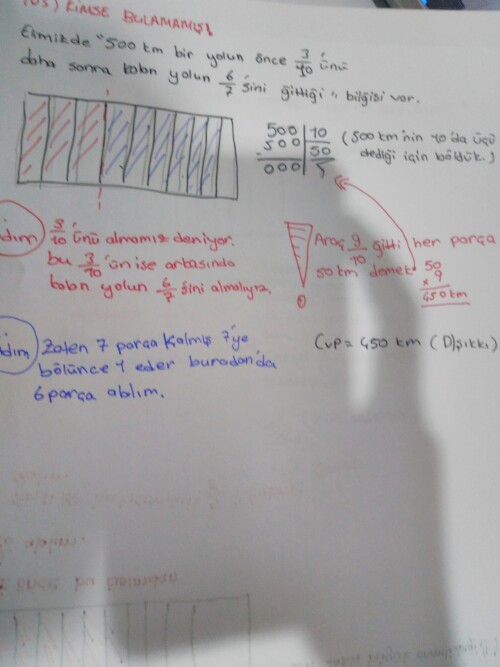 KİMSE BULAMAMIŞ!
Elimizde "500 km bir yolun önce 3/10'ünü
daha sonra kalan yolun 6/7'sini gittiği" bilgisi var.
500 | 10
500 | 50
000
(500 km'nin 10'da üçü
dediği için böldük.)
dım) 3/10'ünü almamız deniyor.
bu 3/10'ün ise arkasında
kalan yolun 6/7'sini almalıyız.
Araç 9/10 gitti her parça
50 km demek
50
x 9
450 km
dım) Zaten 7 parça kalmış 7'ye
bölünce 1 eder buradan da
6 parça alalım.
Cvp = 450 km (D)şıkkı)